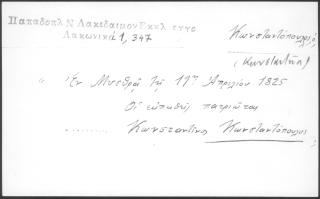 Παπαδοπλ Ν Λακεδαιμον Εκκλ εγγρ
Λακωνικά 1, 347
Κωνσταντόπουλος,
(Κωνσταντῖνος)
" Ἐν Μυστρᾷ τῇ 11ῃ Ἀπριλίου 1825
Οἱ εὐπειθεῖς πατριῶται
......... Κωνσταντῖνος Κωνσταντόπουλος